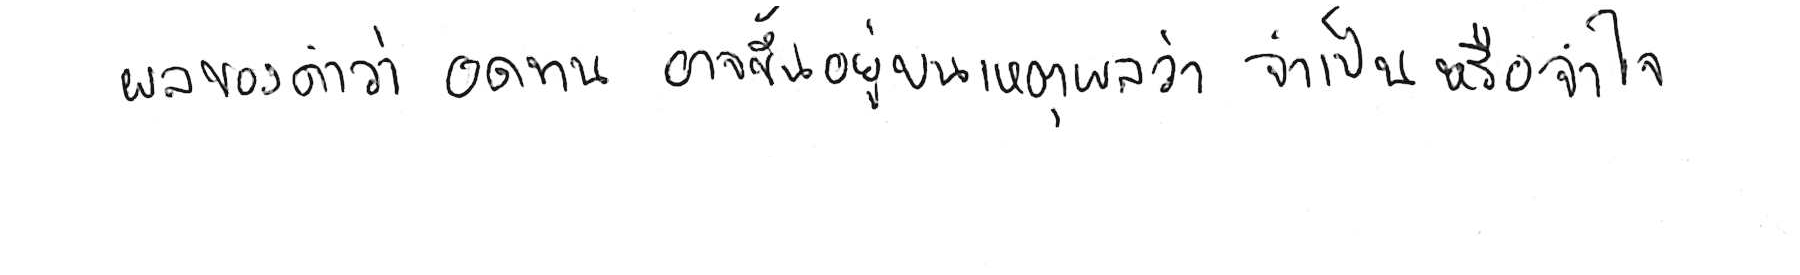 ผลของคำว่า อดทน อาจขึ้นอยู่บนเหตุผลว่า จำเป็น หรือจำใจ